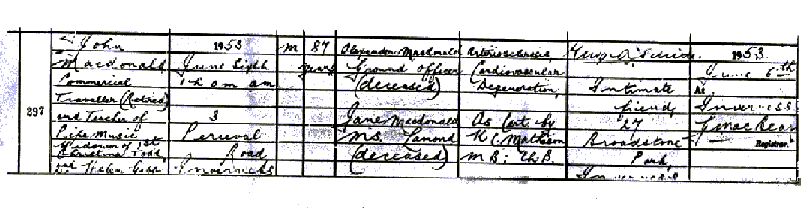 297
John
Macdonald
Commercial
Traveller (Retired)
and Teacher of
Pipe Music
Widower of 1st
Christina Todd
2nd Helen
1953
June
1h 0m am
3
Perceval
Road
Inverness
m
87
years
Alexander Macdonald
Ground Officer
(deceased)
Jane Macdonald
ms. Lamond
(deceased)
Arteriosclerosis
Cardiovascular
Degeneration
As Cert. by
M.B.; Ch.B.
Intimate
friend
27
Broadstone
Park,
Inverness
1953
June
At
Inverness
Registrar.